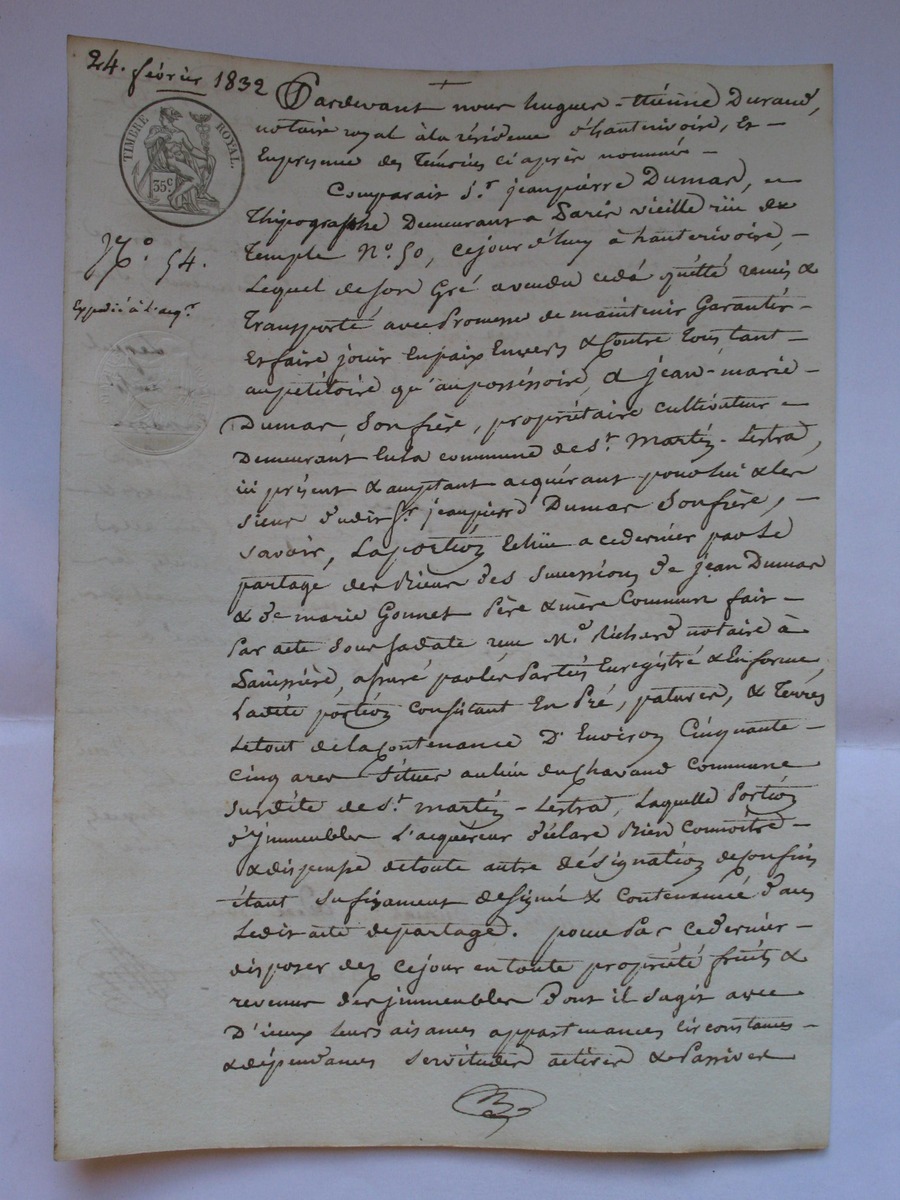 24. février 1832
TIMBRE ROYAL.
35c
No. 54.
Expédié à l'acqr.
Pardevant nous hugues-étienne Durand,
notaire royal à la résidence d'hauterivoire, Et
En presence des témoins ci après nommés
Comparait Sr. jeanpierre Dumas,
thipographe Demeurant a Paris vieille rüe du
temple No. 50, cejour d'huy à hauterivoire,
Lequel de son Gré avendu cédé quitté remis &
transporté avec Promesse de maintenir Garantir
Et faire jouir Enpaix Envers & Contre tous tant
aupétitoire qu'aupossessoire, a jean-marie
Dumas Son frère, propriétaire cultivateur
Demeurant En la commune de St. Martin-Lestra,
ici présent & acceptant acquérant pour lui & les
siens dudit Sr. jeanpierre Dumas Sonfrère,
savoir, La portion Echüe a cedernier par Le
partage des Biens des Successions de jean Dumas
& de marie Gonnet Père & mère Communs fait
Par acte Sous sadate reçu Me. Richard notaire à
assuré par les Parties Enregistré & En forme,
Ladite portion Consistant En Pré, patures, & Terres
Le tout de la contenance D'Environ Cinquante-
cinq ares Situés au lieu du Chavand Commune
susdite de St. martin-Lestra, Laquelle Portion
d'jmmeubles L'acquéreur déclare Bien Connoitre
& dispense detoute autre désignation de confins
étant sufisament désigné & contenancé dans
Ledit acte departage. pour Par cedernier
disposer dez cejour en toute propriété fruits &
revenus des jmmeubles dont il sagit avec
D'iceux leurs aisances appartenances circonstances
& dépendances servitudes actives & Passives